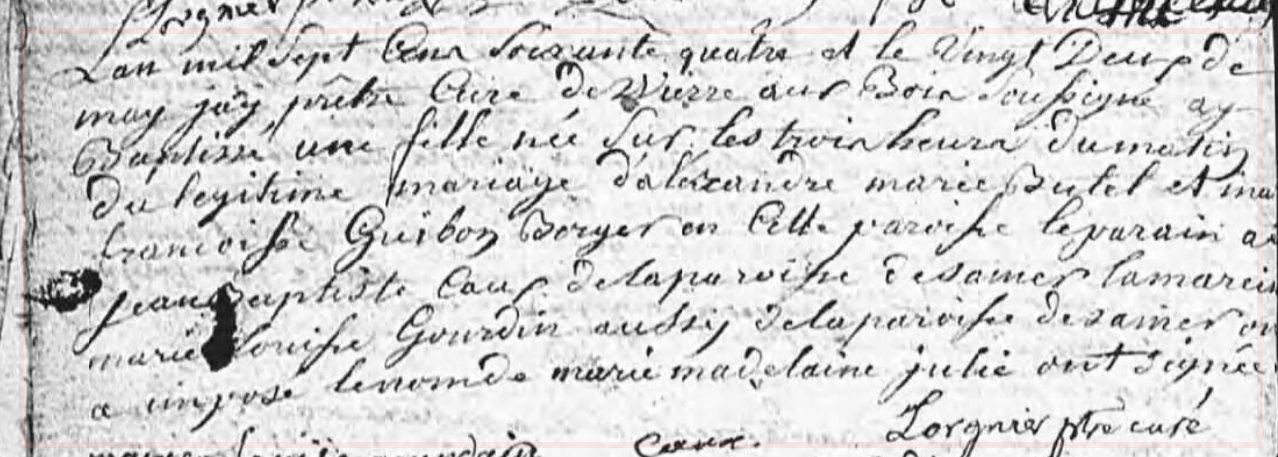 Lorgnier
Lan mil sept Cens soixante quatre et le Vingt Deux de
may jay prêtre Cure De Wierre aux Bois Soussigne ay
Baptisé une fille née sur les trois heures du matin
du legitime mariage d'alexandre marie Butel et ma
francoisse Guibon Berger en Cette paroisse le parain a
jean Baptiste Caux de la paroisse de samer la marein
marie Louisse Gourdin aussy de la paroisse de samer on
a imposé le nom de marie madelaine julie ont signée
Lorgnier ptre curé
caux.